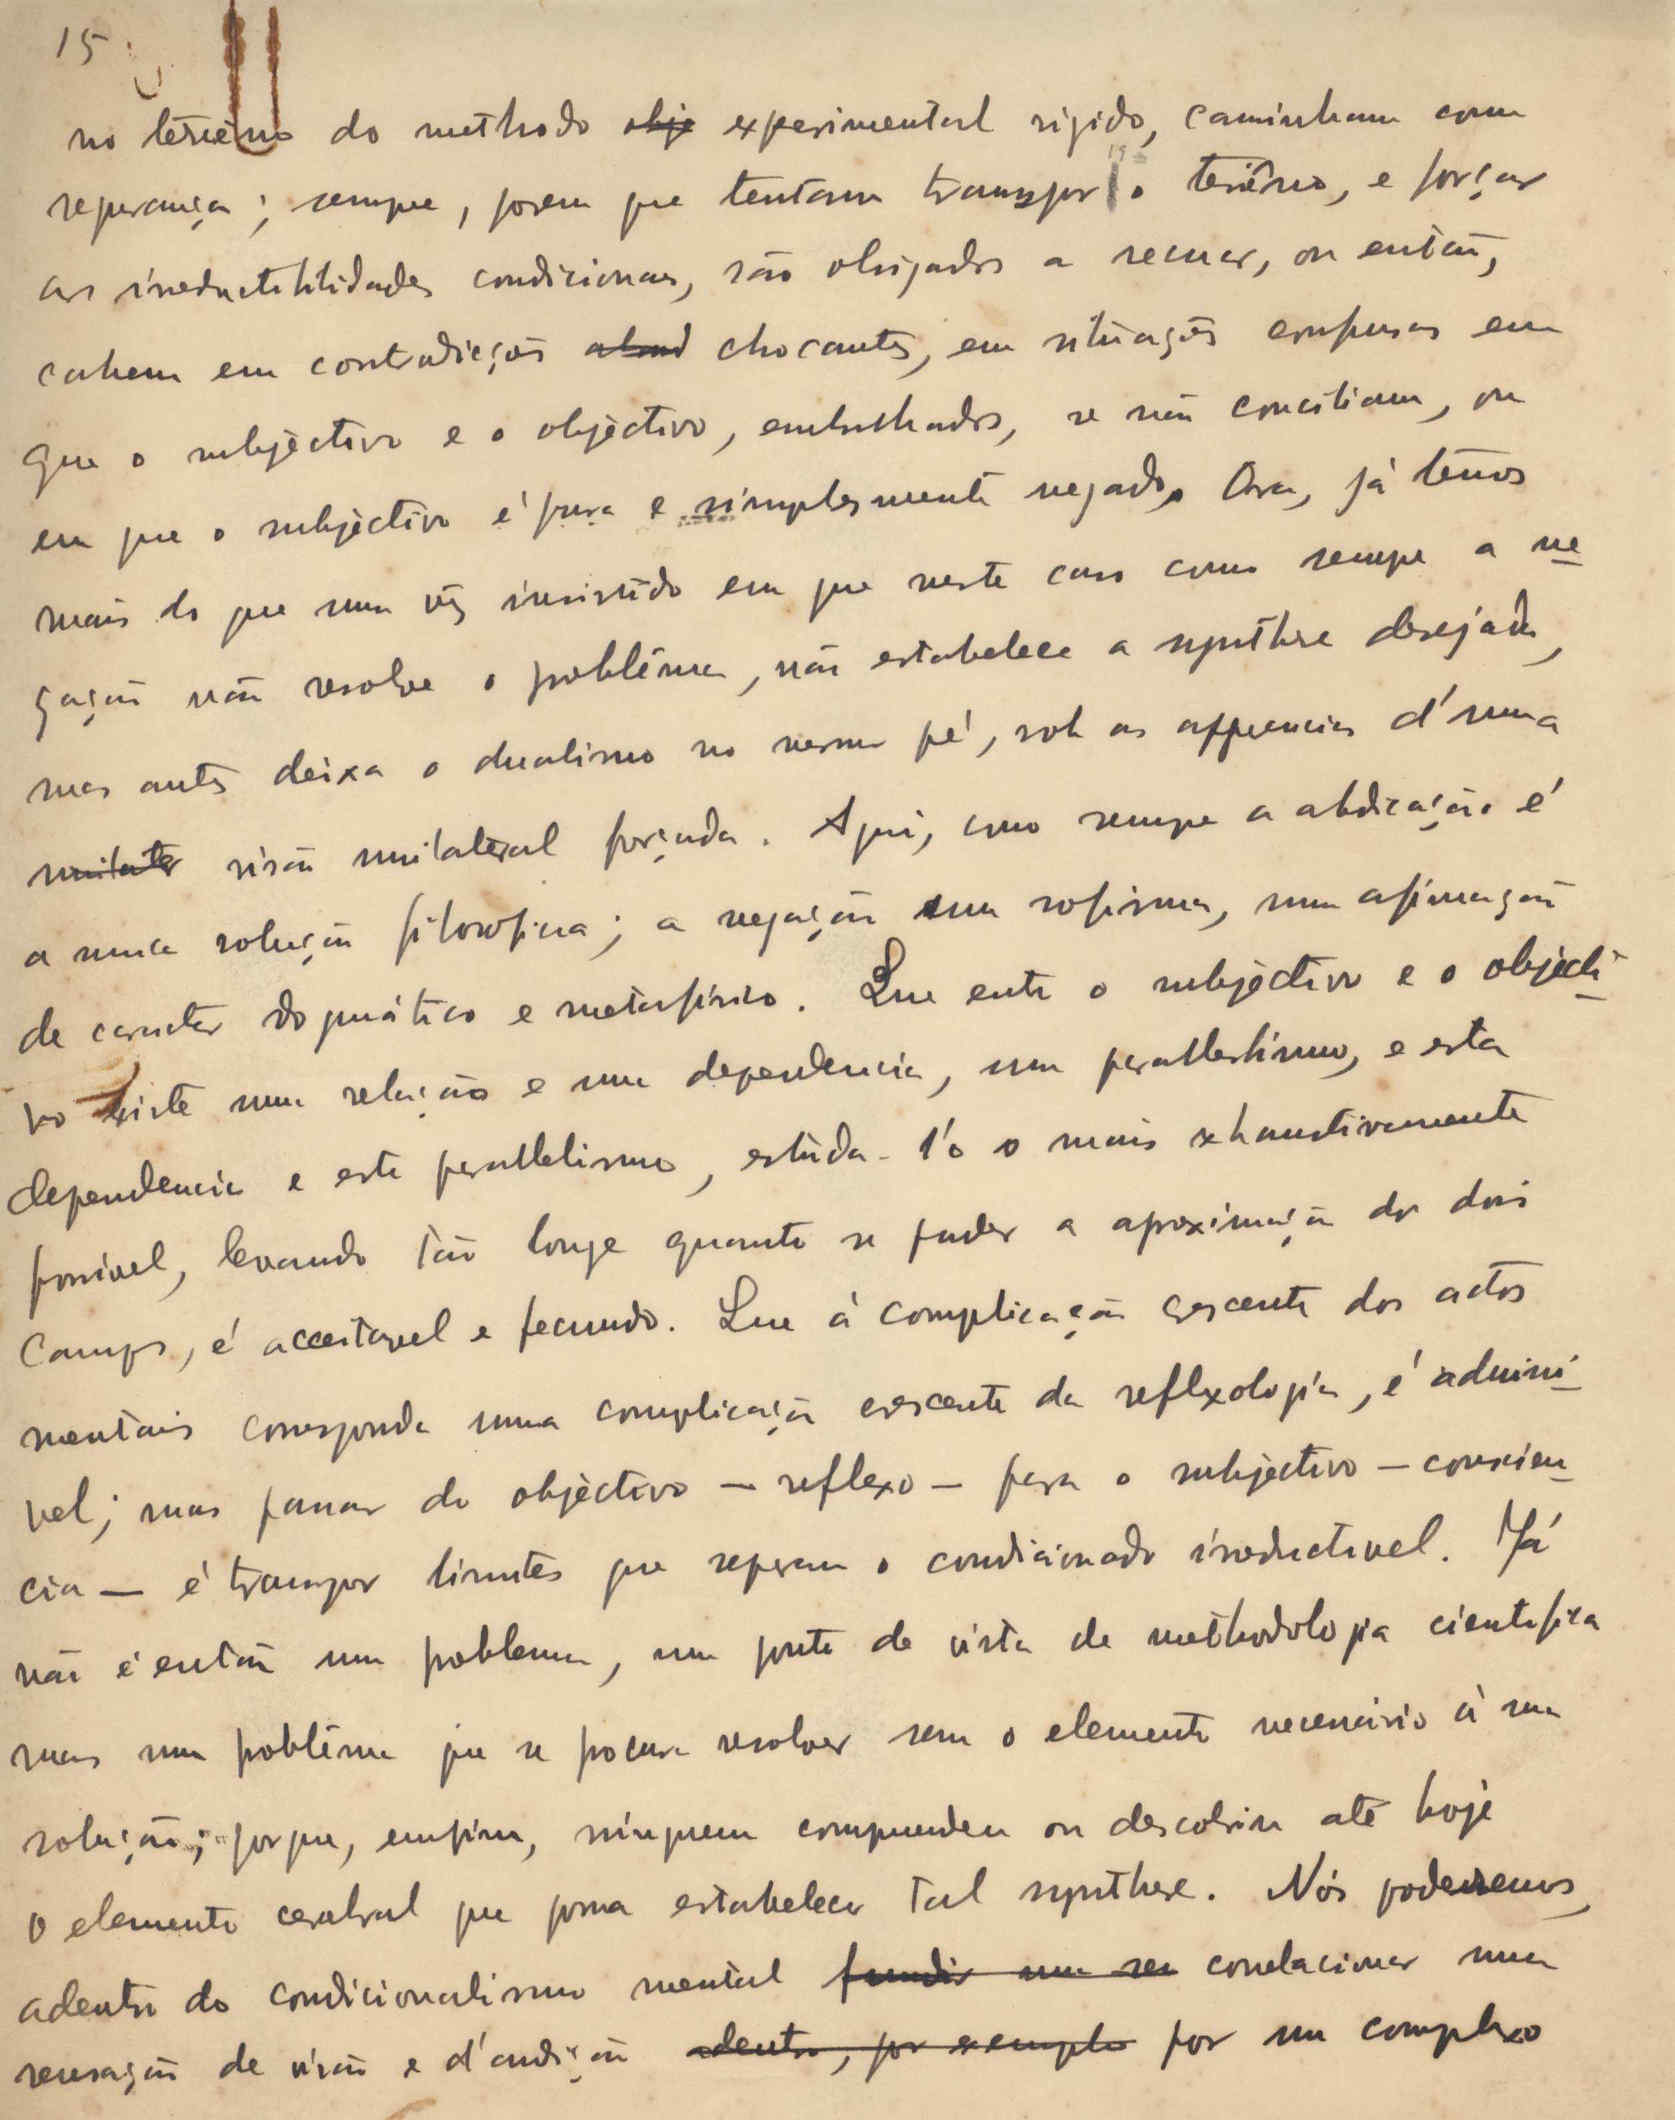 15
no terrêno do methodo obje experimental rigido, caminham com
segurança; sempre, porem que tentam transpor o terrêno, e forçar
as irreductibilidades condicionaes, são obrigados a recuar, ou então,
cahem em contradicções chocantes, em situações confusas em
que o subjectivo e o objectivo, embrulhados, se não conciliam, ou
em que o subjectivo é pura e simplesmente negado. Ora, já temos
mais do que uma vêz insistido em que neste caso como sempre a ne
gação não resolve o problêma, não estabelece a synthese desejada,
mas antes deixa o dualismo no mesmo pé, sob as apparencias d'uma
unilater visão unilateral forçada. Aqui, como sempre a abdicação é
a unica solução filosofica; a negação um sofisma, uma afirmação
de caracter dogmático e metafísico. Que entre o subjectivo e o objecti
vo existe uma relação e uma dependencia, um parallelismo, e esta
dependencia e este parallelismo, estuda-l'o o mais exhaustivamente
possivel, levando tão longe quanto se puder a aproximação dos dois
campos, é acceitavel e fecundo. Que á complicação crescente dos actos
mentais corresponda uma complicação crescente da reflexologia, é admissi
vel; mas passar do objectivo — reflexo — para o subjectivo — conscien
cia — é transpor limites que separam o condicionado irreductivel. Já
não é então um problema, um ponto de vista de methodologia cientifica
mas um problêma que se procura resolver sem o elemento necessário á sua
solução; porque, emfim, ninguem comprendeu ou descobriu até hoje
o elemento cerebral que possa estabelecer tal synthese. Nós poderemos,
adentro do condicionalismo mental fundir uma sen correlacionar uma
sensação de visão e d'audição adentro, por exemplo por um complexo